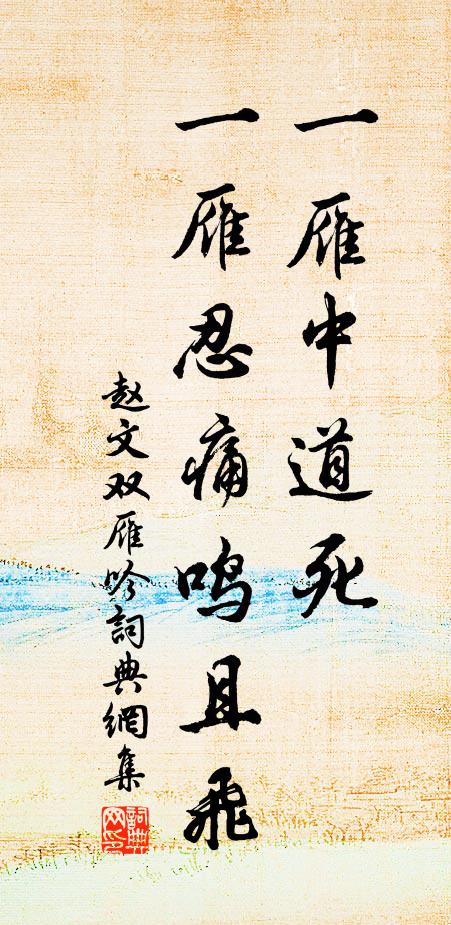 一雁中道死
一雁忍痛鸣且飛
赵文双雁吟詞典網集